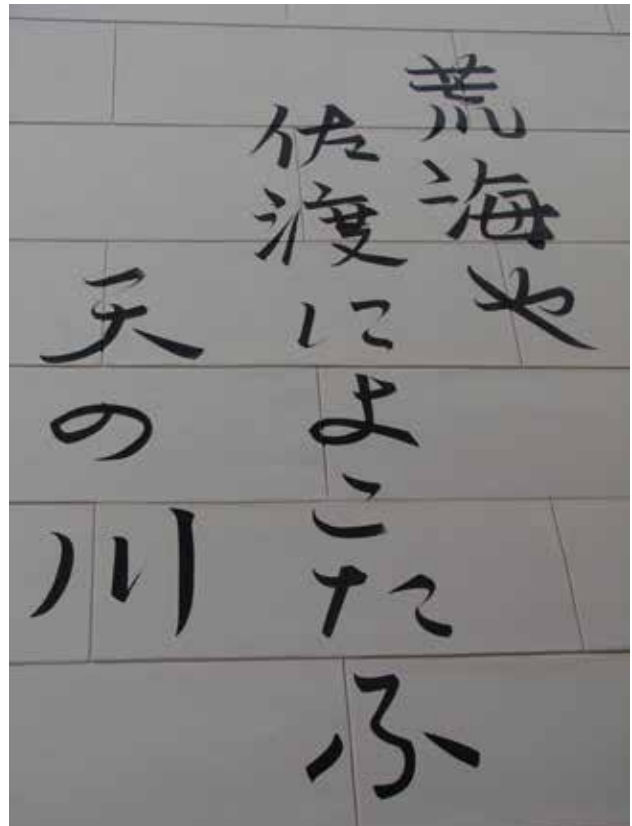 荒海や
佐渡によこたふ
天の川